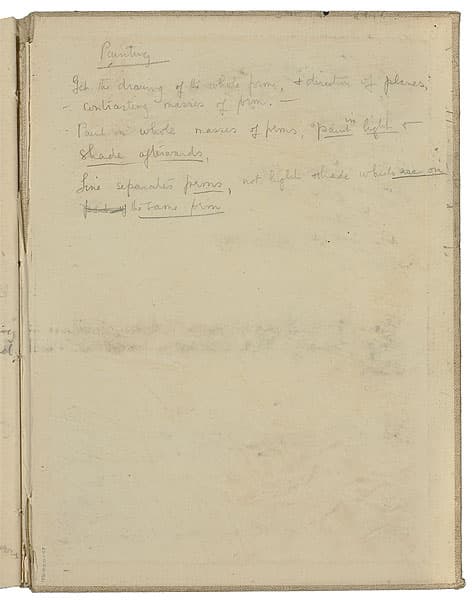 Painting
Get the drawing of the whole form, & direction of planes,
- contrasting masses of form. -
- Paint in whole masses of forms, paint in light &
shade afterwards.
Line separates forms, not light & shade which are on
the same form